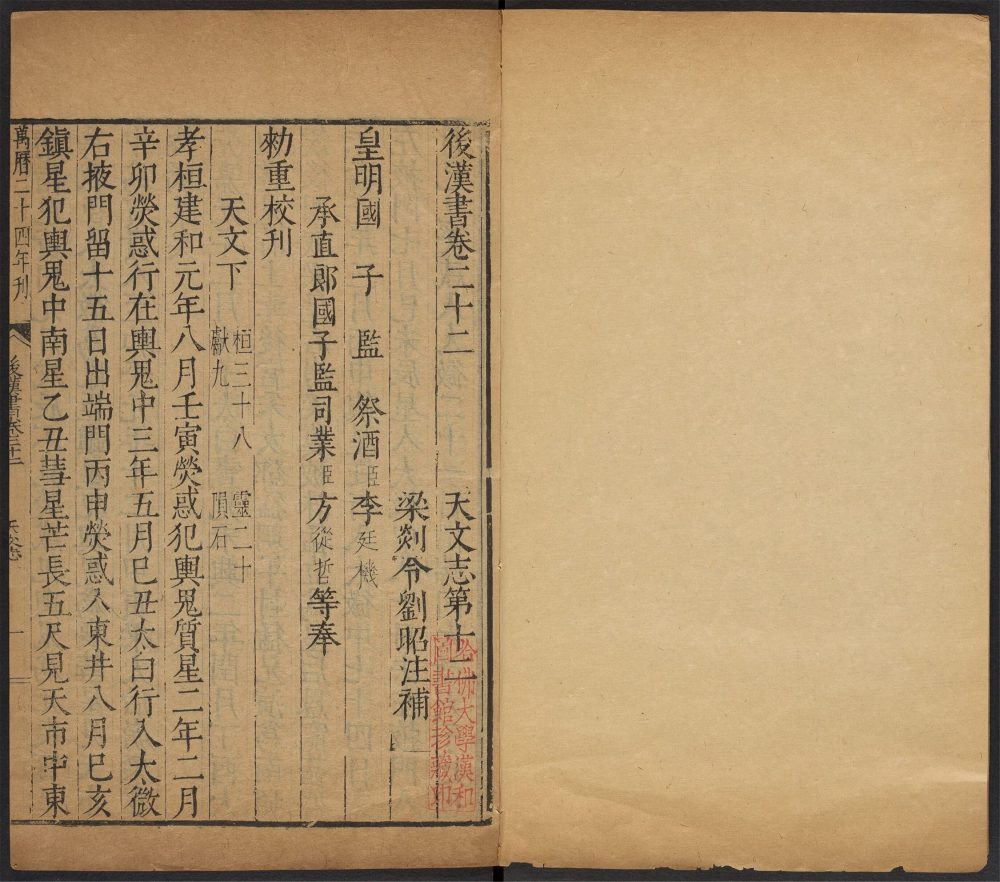 後漢書卷二十二　天文志第十二
梁剡令劉昭注補
皇明國子監祭酒臣李廷機
承直郎國子監司業臣方從哲等奉
勑重校刊
天文下　桓三十八　靈二十
獻九　隕石
孝桓建和元年八月壬寅熒惑犯輿鬼質星二年二月
辛卯熒惑行在輿鬼中三年五月巳丑太白行入太微
右掖門留十五日出端門丙申熒惑入東井八月巳亥
鎮星犯輿鬼中南星乙丑彗星芒長五尺見天市中東
萬曆二十四年刊
後漢書卷二十二　天文志　一
哈佛大學漢和
圖書館珍藏印